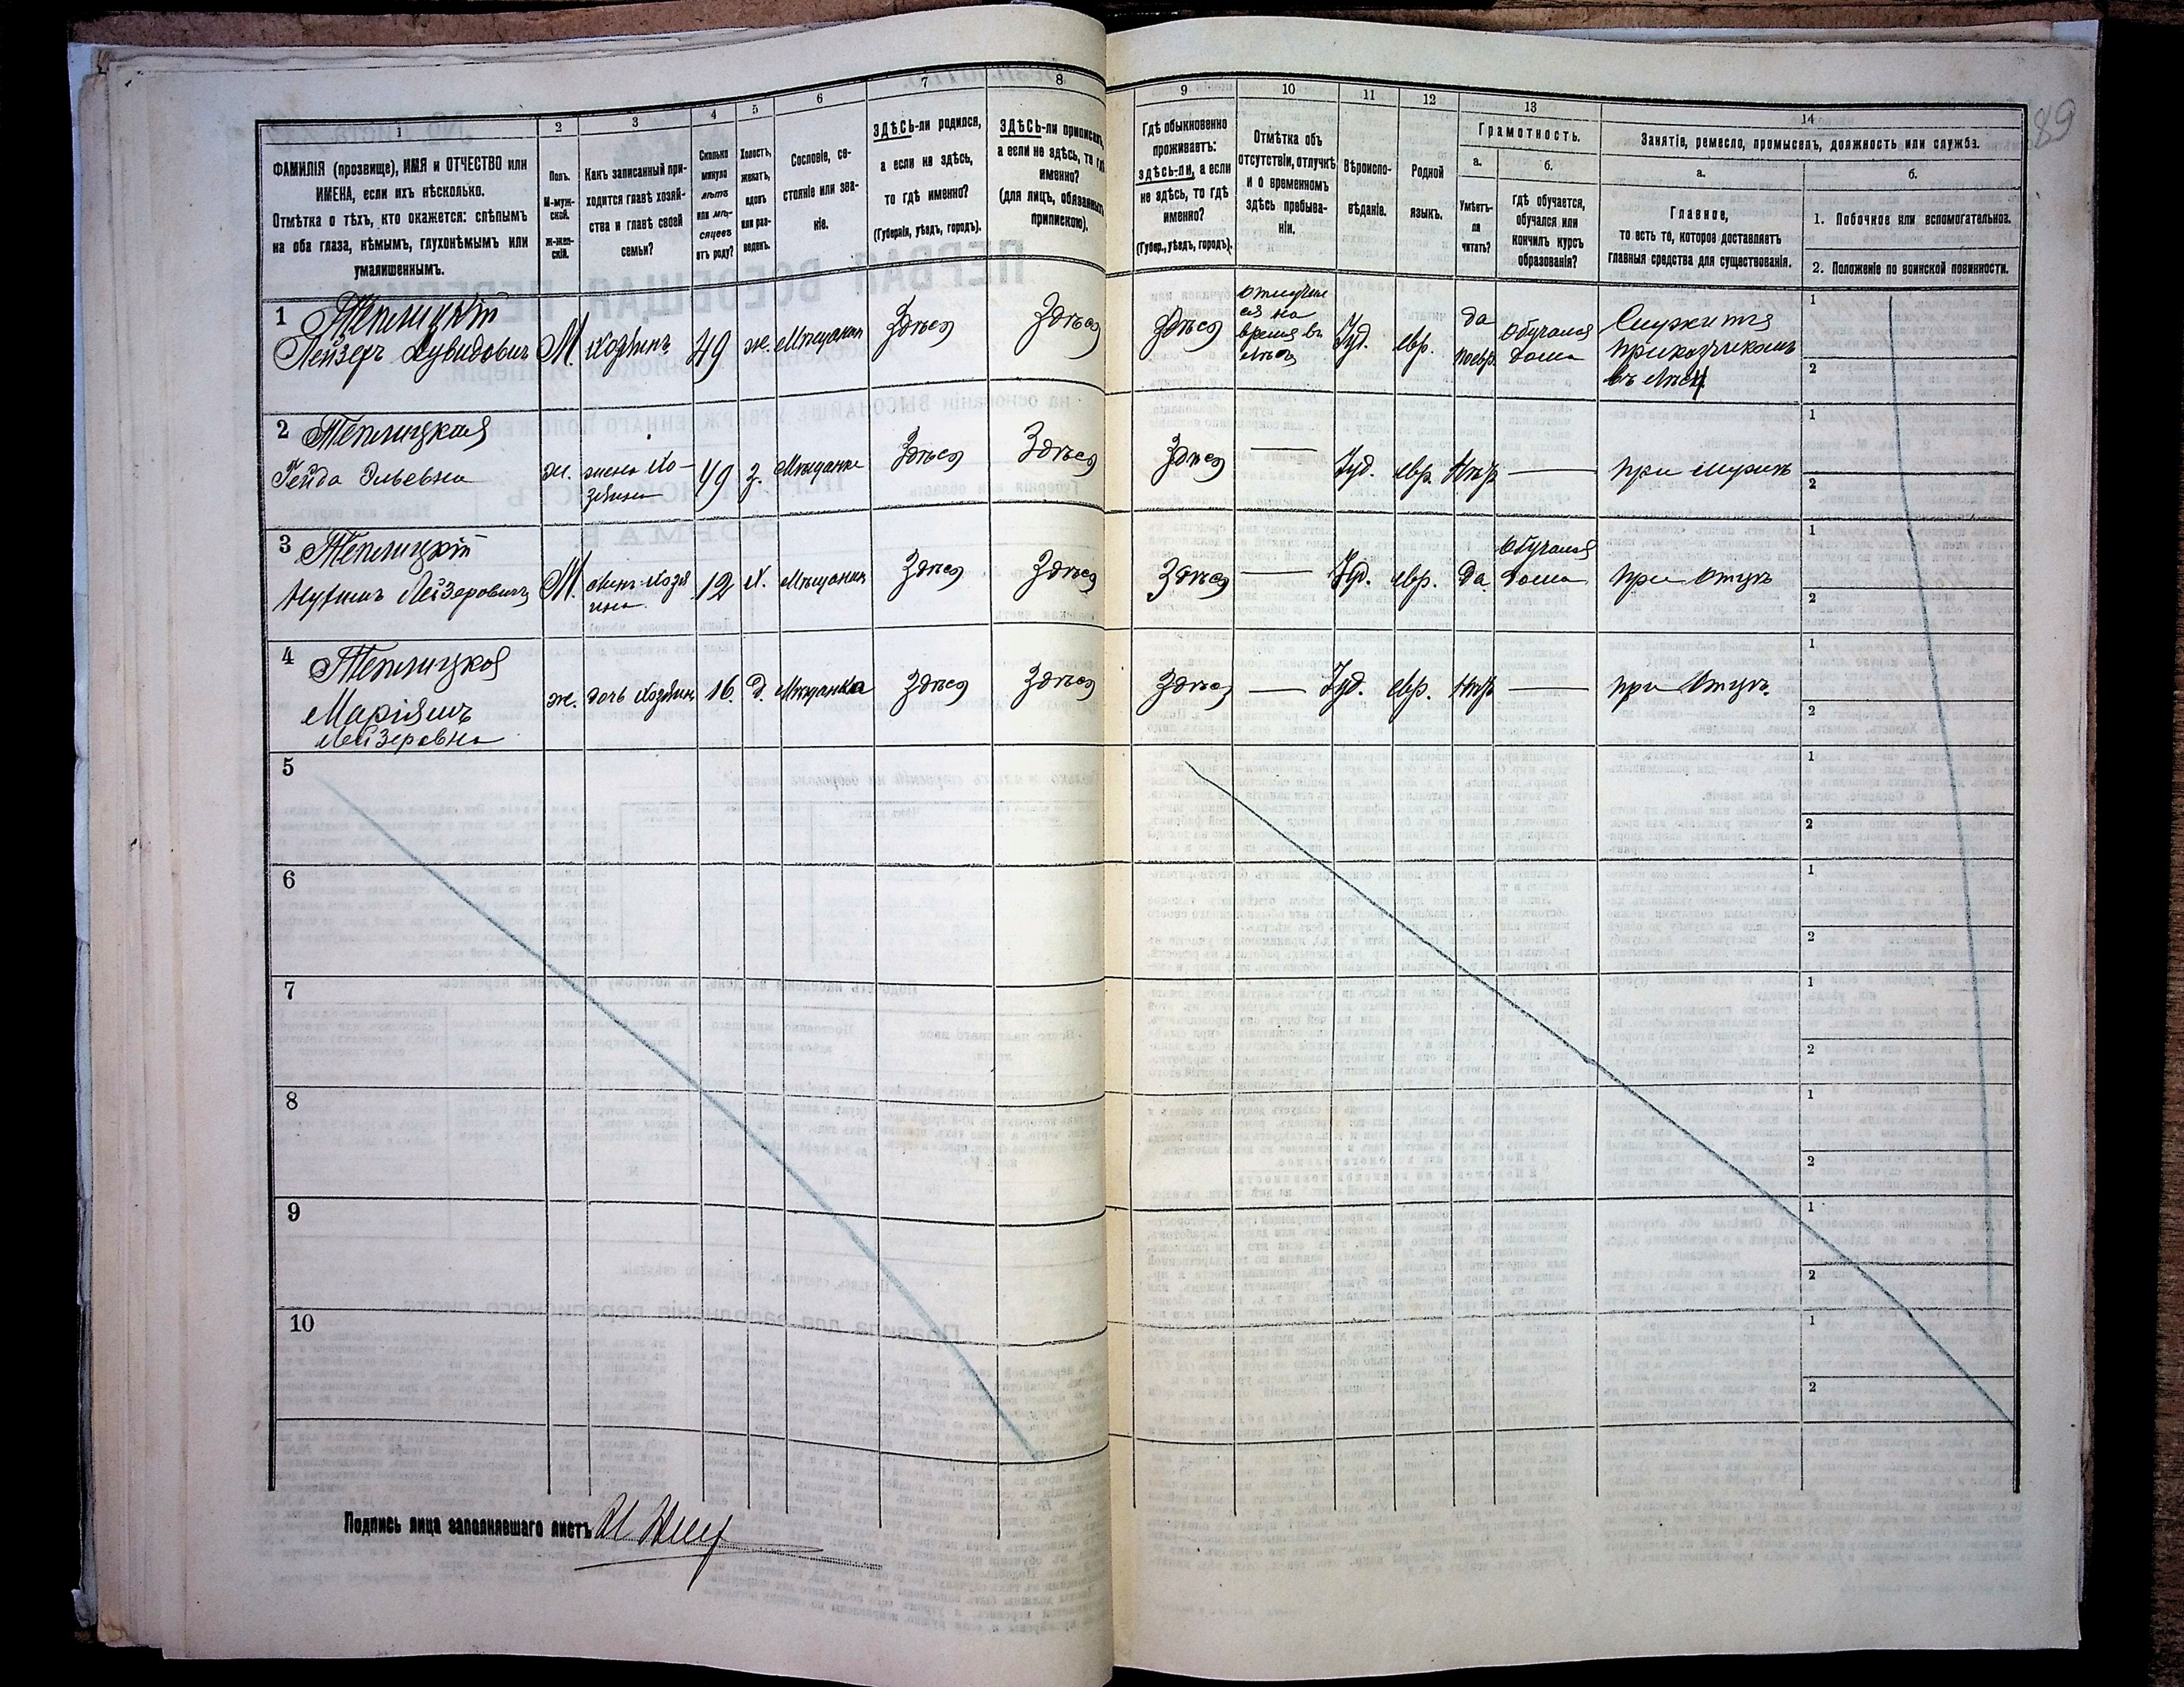 89
1
2
3
4
5
6
7
8
9
10
11
12
13
14
ФАМИЛІЯ (прозвище), ИМЯ и ОТЧЕСТВО или
ИМЕНА, если ихъ нѣсколько.
Отмѣтка о тѣхъ, кто окажется: слѣпымъ
на оба глаза, нѣмымъ, глухонѣмымъ или
умалишеннымъ.
Полъ.
М-муж-
ской.
Ж-жен-
скій.
Какъ записанный при-
ходится главѣ хозяй-
ства и главѣ своей
семьи?
Сколько
минуло
лѣтъ
или мѣ-
сяцевъ
отъ роду?
Холостъ,
женатъ,
вдовъ
или раз-
веденъ.
Сословіе, со-
стояніе или зва-
ніе.
ЗДѢСЬ-ли родился,
а если не здѣсь,
то гдѣ именно?
(Губернія, уѣздъ, городъ).
ЗДѢСЬ-ли приписанъ,
а если не здѣсь, то гдѣ
именно?
(для лицъ, обязанныхъ
припискою).
Гдѣ обыкновенно
проживаетъ:
здѣсь-ли, а если
не здѣсь, то гдѣ
именно?
(Губер., уѣздъ, городъ).
Отмѣтка объ
отсутствіи, отлучкѣ
и о временномъ
здѣсь пребыва-
ніи.
Вѣроиспо-
вѣданіе.
Родной
языкъ.
Грамотность.
а.
Умѣетъ-
ли
читать?
б.
Гдѣ обучается,
обучался или
кончилъ курсъ
образованія?
Занятіе, ремесло, промыселъ, должность или служба.
а.
Главное,
то есть то, которое доставляетъ
главныя средства для существованія.
б.
1. Побочное или вспомогательное.
2. Положеніе по воинской повинности.
1 Теплицкій
Лейзеръ Дувидовичъ М хозяинъ 49 ж. Мѣщанин Здѣсь Здѣсь Здѣсь
на
время въ
Іуд. евр. да
по евр. Обучался
дома
Служитъ
приказчикомъ
въ лѣсу
1
2
2 Теплицкая
Гейда Эльевна ж. жена хо-
зяина 49 з. Мѣщанка Здѣсь Здѣсь Здѣсь — Іуд. евр. нѣтъ — при мужѣ
1
2
3 Теплицкій
Лейзеровичъ М. сынъ хозя
ина 12 х. Мѣщанин Здѣсь Здѣсь Здѣсь — Іуд. евр. да Обучался
дома при отцѣ
1
2
4 Теплицкая
Маріямъ
Лейзеровна ж. дочь хозяина 16 д. Мѣщанка Здѣсь Здѣсь Здѣсь — Іуд. евр. нѣтъ — при отцѣ.
1
2
5
1
2
6
1
2
7
1
2
8
1
2
9
1
2
10
1
2
Подпись лица заполнявшаго листъ